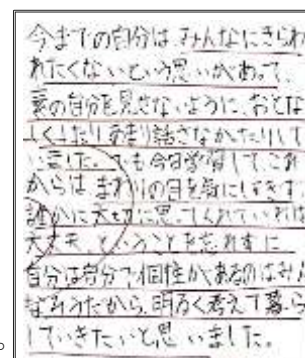 今までの自分は、みんなにきらわ
れたくないという思いがあって、
素の自分を見せないように、おとな
しくしたりあまり話さなかったりして
いました。でも今日学習して、これ
からはまわりの目を気にしすぎず
誰かに大切に思ってくれていれば
大丈夫、ということを忘れずに
自分は自分で個性があるのはみん
なそうだから、明るく考えて暮ら
していきたいと思いました。